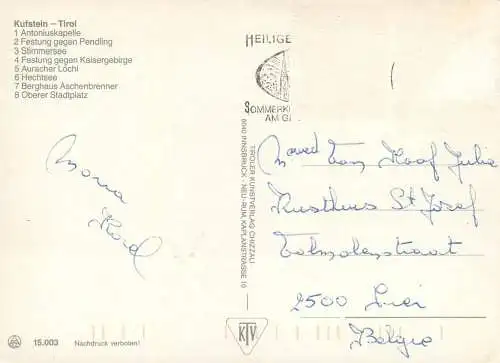 Kufstein – Tirol
1 Antoniuskapelle
2 Festung gegen Pendling
3 Stimmersee
4 Festung gegen Kaisergebirge
5 Auracher Löchl
6 Hechtsee
7 Berghaus Aschenbrenner
8 Oberer Stadtplatz
HEILIGE
SOMMERK
AM G
Maria
Karel
TIROLER KUNSTVERLAG CHIZZALI
6040 INNSBRUCK - NEU-RUM, KAPLANSTRASSE 10
Van Hoof Julia
Rusthuis St Jozef
2500 Lier
Belgie
KTV
15.003
Nachdruck verboten!